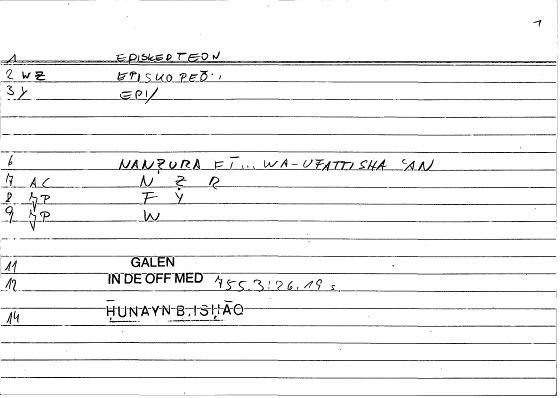 1
1 EPISKEPTEON
2 WZ EPISKOPEŌ
3 Y EPI/
6 NANẒURA FĪ... WA-UFATTISHA ʿAN
7 AC N Ẓ R
8 F Y
9 W
11 GALEN
12 IN DE OFF MED 755.3:26.19 s
14 ḤUNAYN B. ISḤĀQ